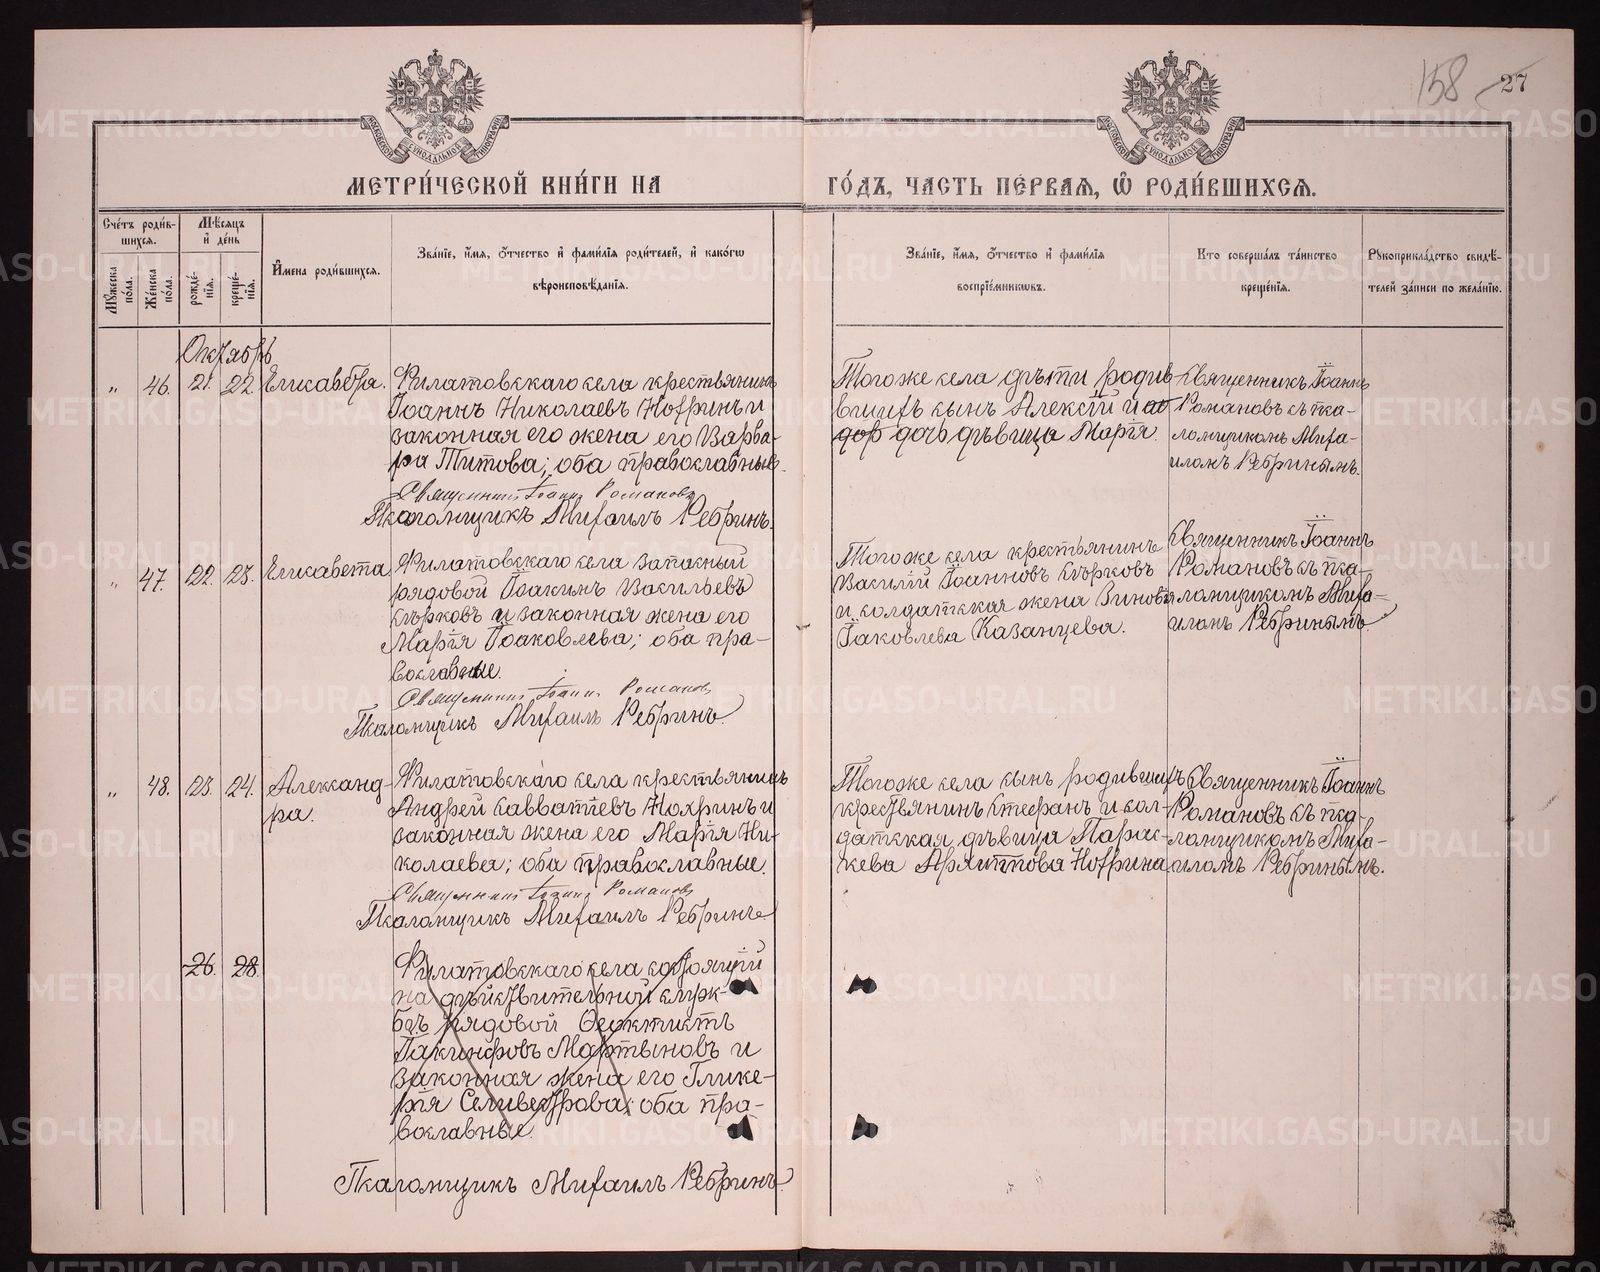 158 27
МОСКОВСКОЙ СѴНОДАЛЬНОЙ ТИПОГРАФІИ
МОСКОВСКОЙ СѴНОДАЛЬНОЙ ТИПОГРАФІИ
МЕТРИ́ЧЕСКОЙ КНИ́ГИ НА ГО́ДЪ, ЧАСТЬ ПЕ́РВАЯ, Ѡ҆ РОДИ́ВШИХСЯ.
Сче́тъ роди́в-
шихся.
Мꙋ́жеска по́ла.
Же́нска по́ла.
Мѣ́сяцъ
и҆ де́нь
рожде́-
нїя.
креще́-
нїя.
И҆мена роди́вшихся.
Зва́нїе, и҆́мя, ѻ҆́тчество и҆ фами́лїя роди́телей, и҆ како́гѡ
вѣроисповѣ́данїя.
Зва́нїе, и҆́мя, ѻ҆́тчество и҆ фами́лїя
воспрїе́мникѡвъ.
Кто соверша́лъ та́инство
креще́нїя.
Рꙋкоприкла́дство свидѣ́-
телей за́писи по жела́нїю.
Октябрь
„ 46. 21. 22. Елисавета.
Филатовскаго села крестьянинъ
Іоаннъ Николаевъ Нохринъ и
законная его жена его Варва-
ра Титова; оба православные.
Священникъ Іоаннъ Романовъ
Псаломщикъ Михаилъ Ребринъ.
Того же села дѣти родив
шихъ сынъ Алексій и
дочь дѣвица Марія.
Священникъ Іоаннъ
Романовъ съ пса-
ломщикомъ Миха-
иломъ Ребринымъ.
„ 47. 22. 23. Елисавета
Филатовскаго села запасный
рядовой Іоакимъ Васильевъ
Сѣрковъ и законная жена его
Марія Іоаковлева; оба пра-
вославные.
Священникъ Іоаннъ Романовъ
Псаломщикъ Михаилъ Ребринъ.
Того же села крестьянинъ
Василій Іоанновъ Сѣрковъ
и солдатская жена Зиновія
Іаковлева Казанцева.
Священникъ Іоаннъ
Романовъ съ пса-
ломщикомъ Миха-
иломъ Ребринымъ.
„ 48. 23. 24. Александ-
ра.
Филатовскаго села крестьянинъ
Андрей Савватіевъ Нохринъ и
законная жена его Марія Ни-
колаева; оба православные.
Священникъ Іоаннъ Романовъ
Псаломщикъ Михаилъ Ребринъ
Того же села сынъ родившихъ
крестьянинъ Стефанъ и сол-
датская дѣвица Парас-
кева Нохрина
Священникъ Іоаннъ
Романовъ съ пса-
ломщикомъ Миха-
иломъ Ребринымъ.
26. 28.
Филатовскаго села состоящій
на дѣйствительной служ-
бѣ рядовой Феоктистъ
Іакинфовъ Мартыновъ и
законная жена его Глике-
рія Селиверстрова; оба пра-
вославные.
Псаломщикъ Михаилъ Ребринъ
METRIKI.GASO-URAL.RU